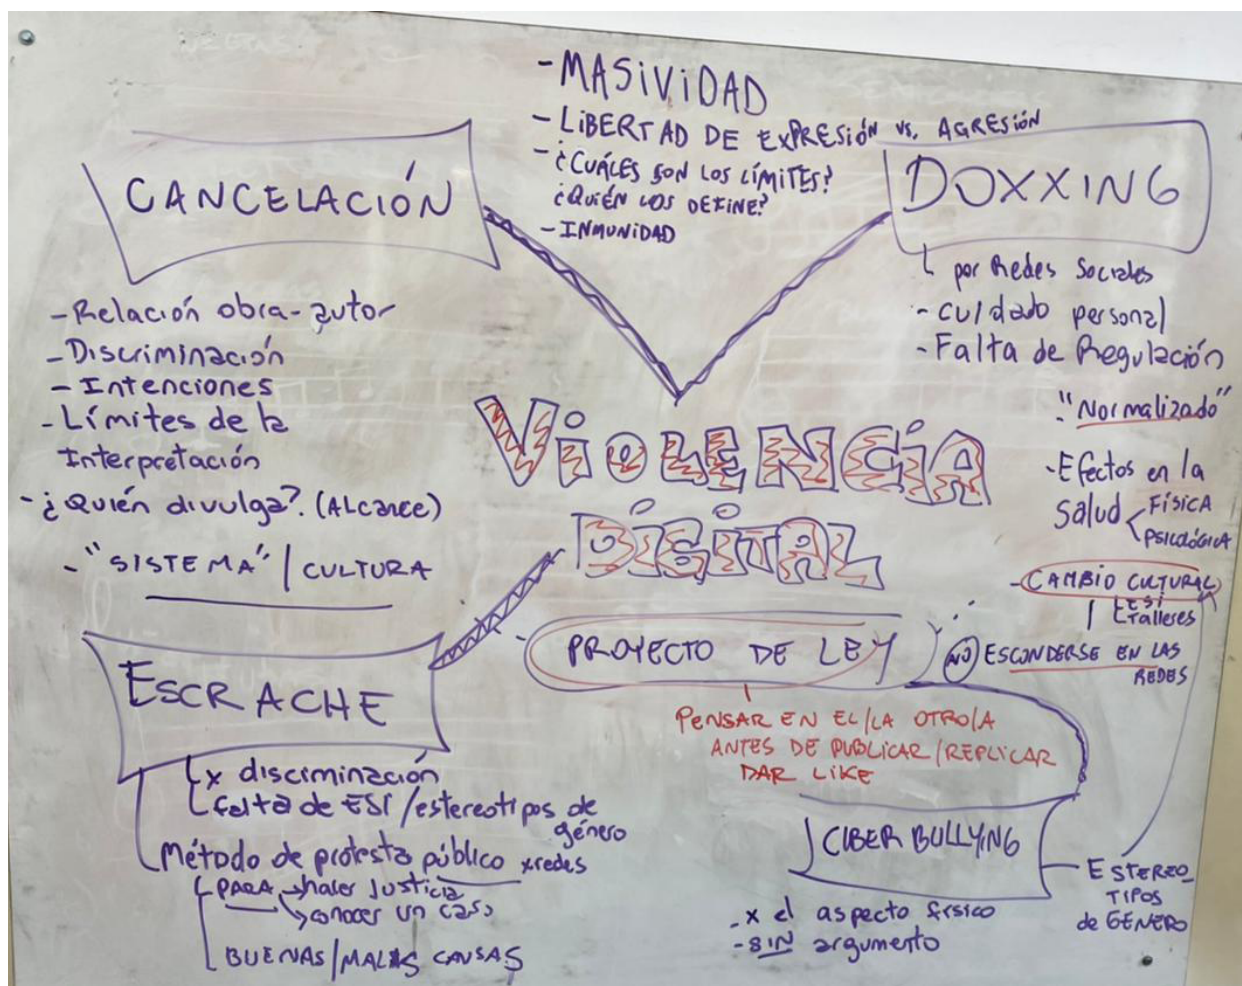 - MASIVIDAD
- LIBERTAD DE EXPRESIÓN vs. AGRESIÓN
- ¿CUÁLES SON LOS LÍMITES?
¿QUIÉN LOS DEFINE?
- INMUNIDAD
CANCELACIÓN
- Relación obra-autor
- Discriminación
- Intenciones
- Límites de la
Interpretación
- ¿Quién divulga? (ALcance)
- "SISTEMA" / CULTURA
DOXXING
por Redes Sociales
- cuidado personal
- Falta de Regulación
"Normalizado"
- Efectos en la
Salud < FÍSICA
PSICOLÓGICA
- CAMBIO CULTURAL
ESI
Talleres
NO ESCONDERSE EN LAS
REDES
VIOLENCIA
DIGITAL
PROYECTO DE LEY
PENSAR EN EL/LA OTRO/A
ANTES DE PUBLICAR/REPLICAR
DAR LIKE
ESCRACHE
x discriminación
falta de ESI/estereotipos de
género
Método de protesta público x redes
PARA → hacer Justicia
→ conocer un caso
BUENAS/MALAS CAUSAS
CIBER BULLYING
- x el aspecto físico
- SIN argumento
ESTEREO_
TIPOS
de GÉNERO